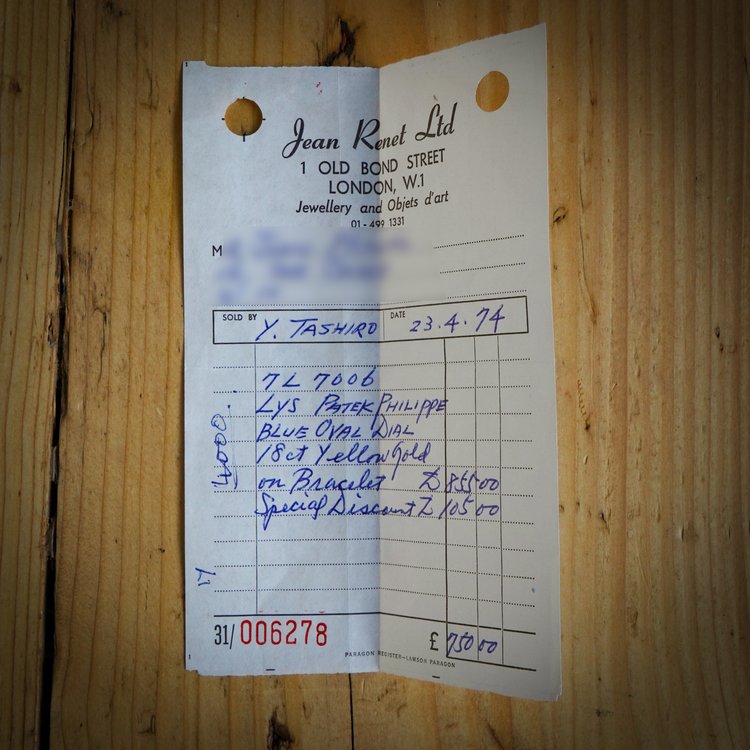 Jean Renet Ltd
1 OLD BOND STREET
LONDON, W.1
Jewellery and Objets d'art
01-499 1331
M
SOLD BY Y. TASHIRO DATE 23.4.74
7L 7006
LYS PATEK PHILIPPE
BLUE OVAL DIAL
18ct Yellow Gold
on Bracelet £ 855 00
Special Discount £ 105 00
4000.
31/ 006278
£ 750 00
PARAGON REGISTER—LAMSON PARAGON